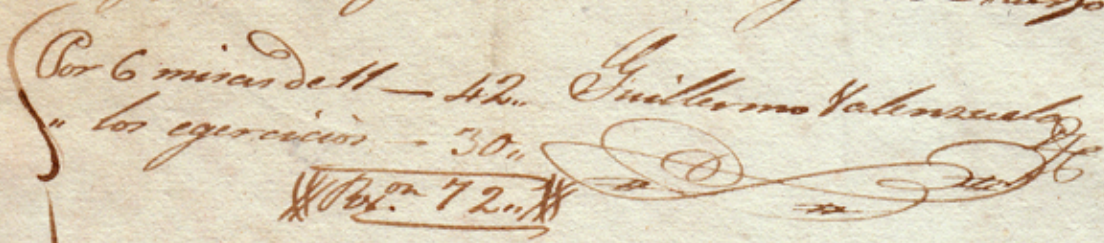 Por 6 misas de 11 — 42.. Guillermo Valenzuela
" los egercicios — 30..
R.on 72..